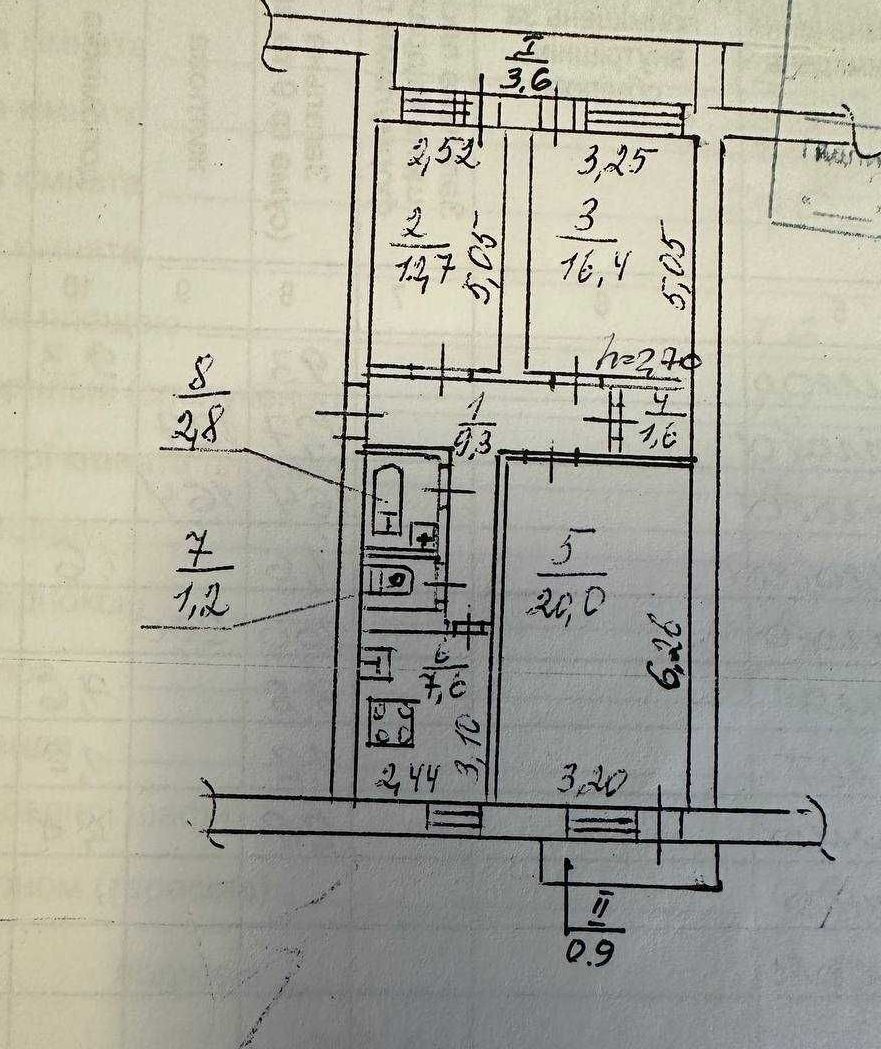 I
3,6
2,52
3,25
2
12,7
5,05
3
16,4
5,05
h=2,70
8
2,8
1
9,3
4
1,6
7
1,2
5
20,0
6,26
6
7,6
3,10
2,44
3,20
II
0.9